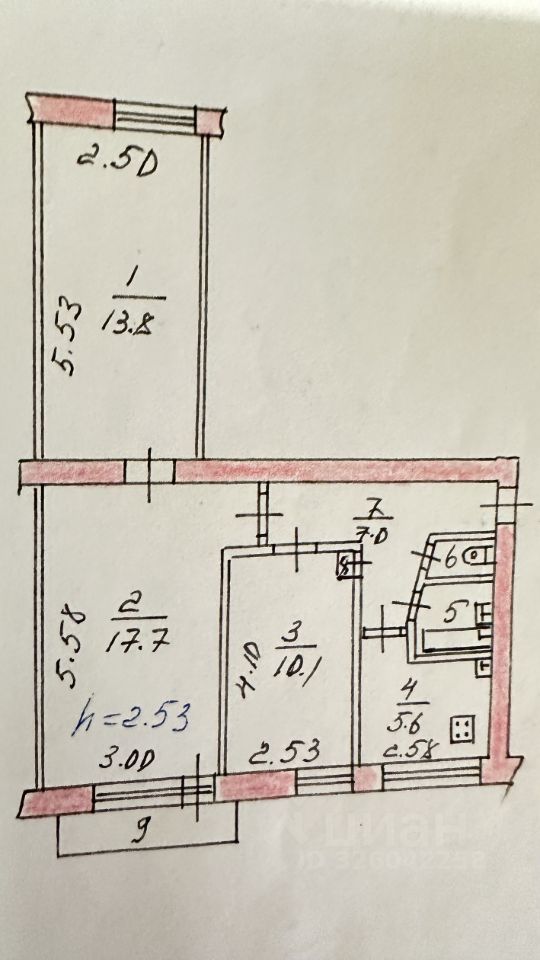 2.50
1
13.8
5.53
7
7.0
6
8
5
2
17.7
5.58
3
10.1
4.10
4
5.6
h=2.53
3.00
2.53
2.58
9
циан
ID 326092258